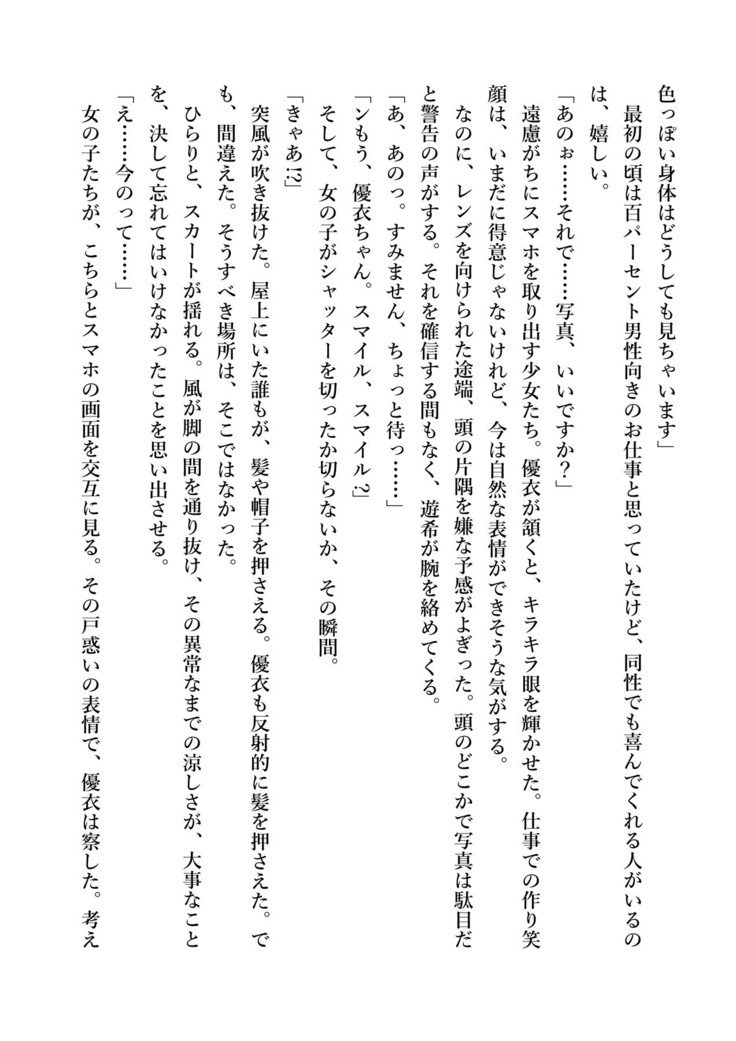 色っぽい身体はどうしても見ちゃいます」
　最初の頃は百パーセント男性向きのお仕事と思っていたけど、同性でも喜んでくれる人がいるの
は、嬉しい。
「あのぉ……それで……写真、いいですか？」
　遠慮がちにスマホを取り出す少女たち。優衣が頷くと、キラキラ眼を輝かせた。仕事での作り笑
顔は、いまだに得意じゃないけれど、今は自然な表情ができそうな気がする。
　なのに、レンズを向けられた途端、頭の片隅を嫌な予感がよぎった。頭のどこかで写真は駄目だ
と警告の声がする。それを確信する間もなく、遊希が腕を絡めてくる。
「あ、あのっ。すみません、ちょっと待っ……」
「ンもう、優衣ちゃん。スマイル、スマイル？」
　そして、女の子がシャッターを切ったか切らないか、その瞬間。
「きゃあ!?」
　突風が吹き抜けた。屋上にいた誰もが、髪や帽子を押さえる。優衣も反射的に髪を押さえた。で
も、間違えた。そうすべき場所は、そこではなかった。
　ひらりと、スカートが揺れる。風が脚の間を通り抜け、その異常なまでの涼しさが、大事なこと
を、決して忘れてはいけなかったことを思い出させる。
「え……今のって……」
　女の子たちが、こちらとスマホの画面を交互に見る。その戸惑いの表情で、優衣は察した。考え